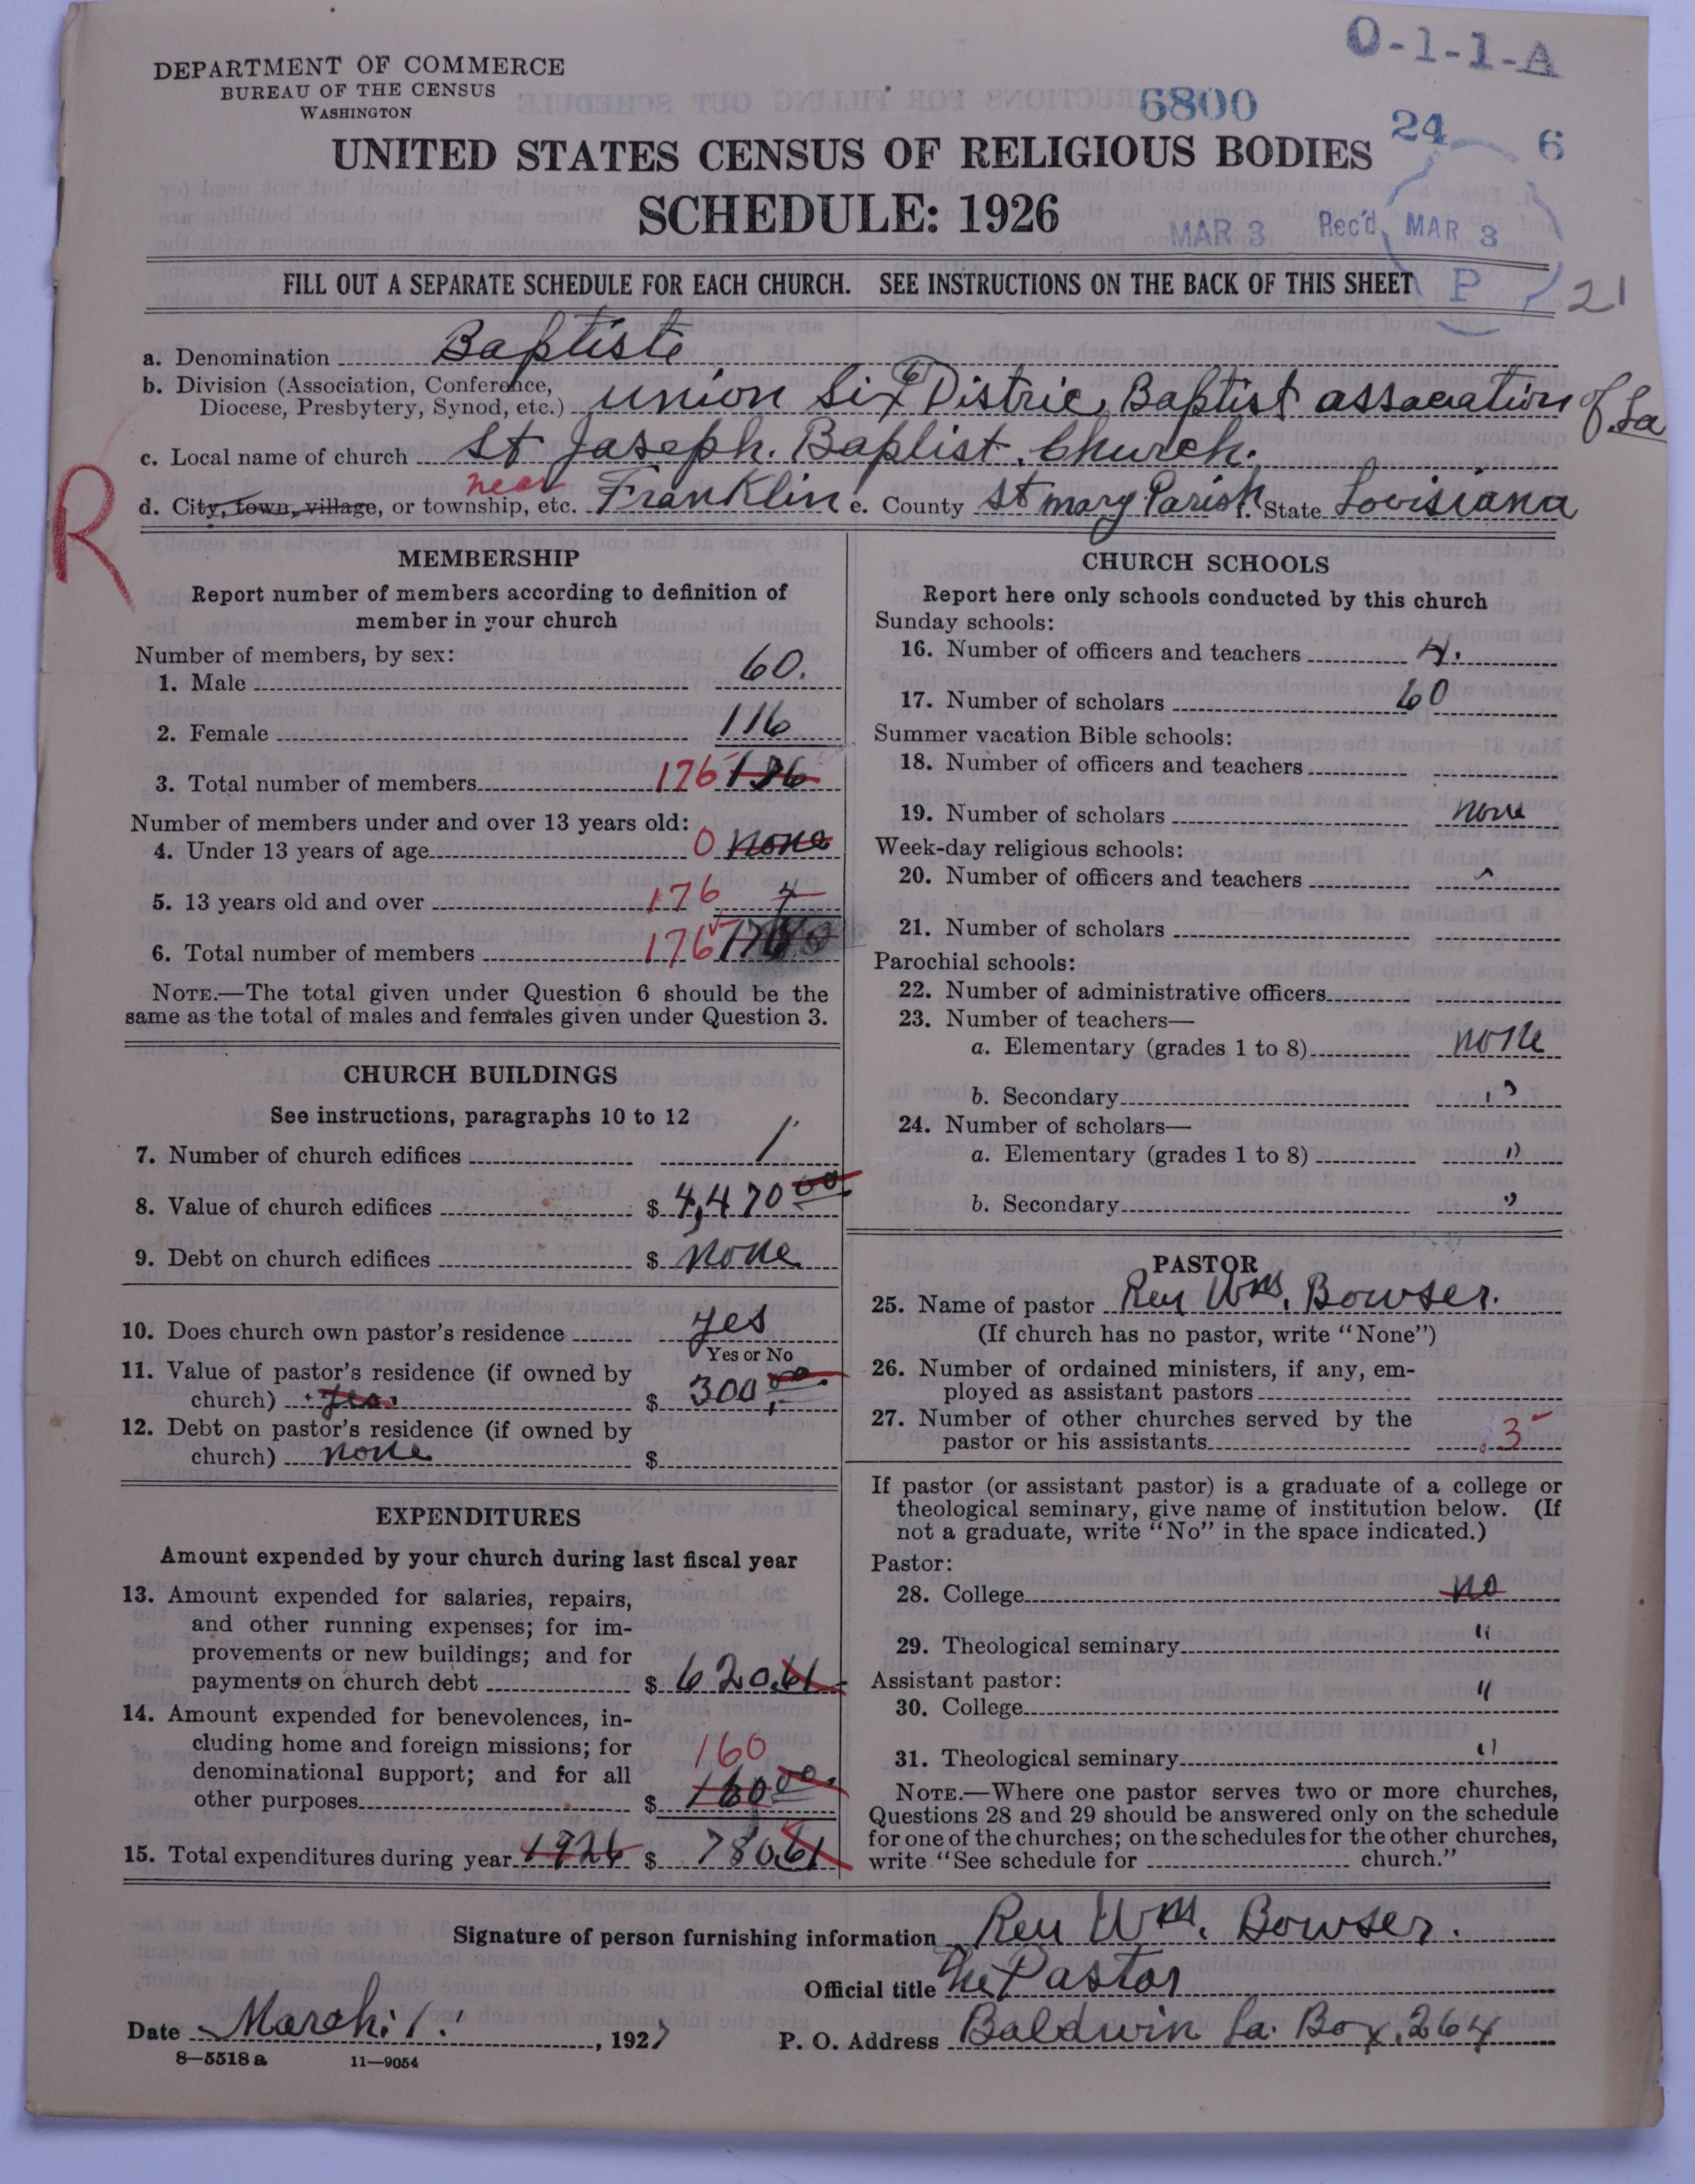 O-1-1-A
DEPARTMENT OF COMMERCE
BUREAU OF THE CENSUS
WASHINGTON
6800
24 6
UNITED STATES CENSUS OF RELIGIOUS BODIES
SCHEDULE: 1926
MAR 3 Rec'd MAR 3
P 21
FILL OUT A SEPARATE SCHEDULE FOR EACH CHURCH. SEE INSTRUCTIONS ON THE BACK OF THIS SHEET
a. Denomination Baptiste
b. Division (Association, Conference,
Diocese, Presbytery, Synod, etc.) Union Six (6) Distric, Baptist assaeration of La
c. Local name of church St Jaseph. Baptist. Church.
R
d. City, town, village, or township, etc. near Franklin e. County St mary Parish f. State Lovisiana
MEMBERSHIP
Report number of members according to definition of
member in your church
Number of members, by sex:
1. Male 60.
2. Female 116
3. Total number of members 176 136
Number of members under and over 13 years old:
4. Under 13 years of age 0 none
5. 13 years old and over 176 4
6. Total number of members 176
NOTE.—The total given under Question 6 should be the
same as the total of males and females given under Question 3.
CHURCH BUILDINGS
See instructions, paragraphs 10 to 12
7. Number of church edifices 1
8. Value of church edifices $ 4,470 00
9. Debt on church edifices $ none
10. Does church own pastor's residence yes
Yes or No
11. Value of pastor's residence (if owned by
church) yes. $ 300,00
12. Debt on pastor's residence (if owned by
church) none $
EXPENDITURES
Amount expended by your church during last fiscal year
13. Amount expended for salaries, repairs,
and other running expenses; for im-
provements or new buildings; and for
payments on church debt $ 620.61
14. Amount expended for benevolences, in-
cluding home and foreign missions; for
denominational support; and for all
160
other purposes $ 160 00
15. Total expenditures during year 1926 $ 780.61
CHURCH SCHOOLS
Report here only schools conducted by this church
Sunday schools:
16. Number of officers and teachers 4.
17. Number of scholars 60
Summer vacation Bible schools:
18. Number of officers and teachers
19. Number of scholars none
Week-day religious schools:
20. Number of officers and teachers
21. Number of scholars
Parochial schools:
22. Number of administrative officers
23. Number of teachers—
a. Elementary (grades 1 to 8) none
b. Secondary "
24. Number of scholars—
a. Elementary (grades 1 to 8) "
b. Secondary "
PASTOR
25. Name of pastor Rev Wm. Bowser.
(If church has no pastor, write "None")
26. Number of ordained ministers, if any, em-
ployed as assistant pastors
27. Number of other churches served by the
pastor or his assistants 3
If pastor (or assistant pastor) is a graduate of a college or
theological seminary, give name of institution below. (If
not a graduate, write "No" in the space indicated.)
Pastor:
28. College no
29. Theological seminary "
Assistant pastor:
30. College "
31. Theological seminary "
NOTE.—Where one pastor serves two or more churches,
Questions 28 and 29 should be answered only on the schedule
for one of the churches; on the schedules for the other churches,
write "See schedule for church."
Signature of person furnishing information Rev Wm. Bowser.
Official title The Pastor
Date March. 1., 1927 P. O. Address Baldwin La. Box. 264
8—5518 a 11—9054